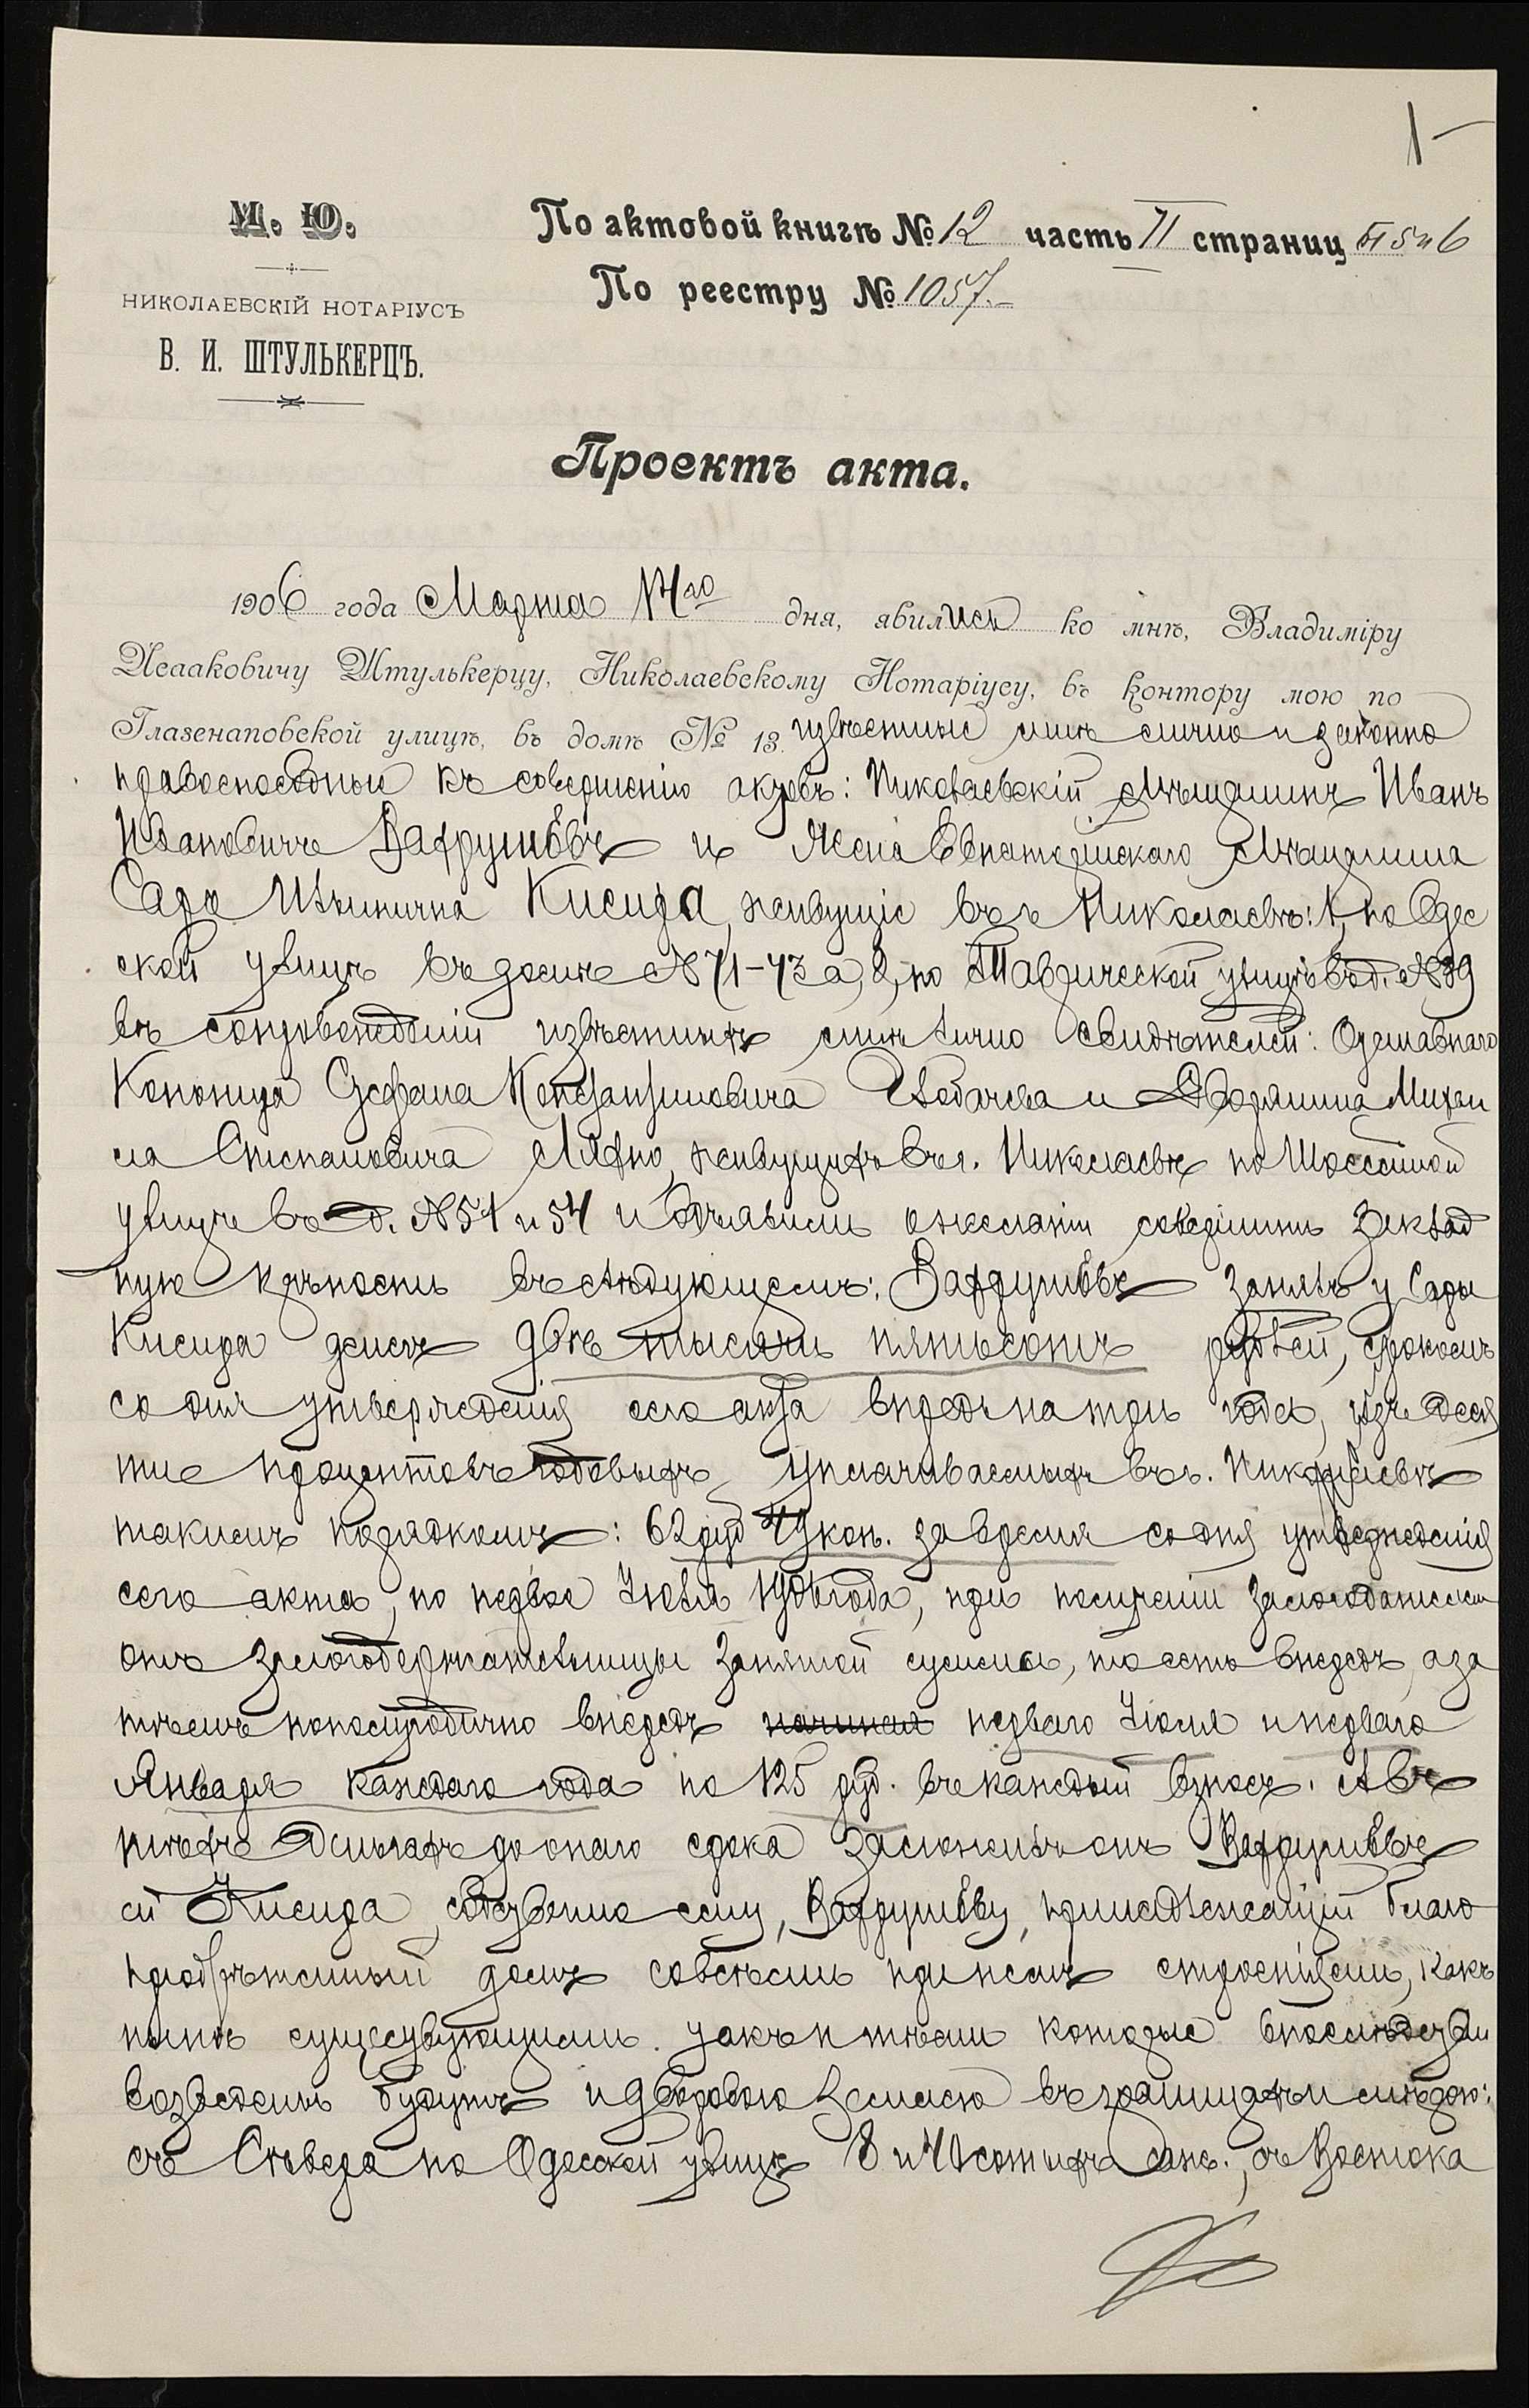 М. Ю.
НИКОЛАЕВСКІЙ НОТАРІУСЪ
В. И. ШТУЛЬКЕРЦЪ.
По актовой книгѣ № 12 часть II страниц ы 5 и 6
По реестру № 1057.
Проектъ акта.
1906 года Марта го дня, явились ко мнѣ, Владиміру
Исааковичу Штулькерцу, Николаевскому Нотаріусу, въ контору мою по
Глазенаповской улицѣ, въ домѣ № 13. извѣстные мнѣ лично и законно
правоспособные къ совершенію актовъ: Николаевскій мѣщанинъ Иванъ
Ивановичъ Вахрушёвъ и жена Евпаторійскаго мѣщанина
Сара Ильинична живущіе въ г. Николаевѣ: 1, по Одес
ской улицѣ въ домѣ № 71-73 а, 2, по Таврической улицѣ въ д. № 39
въ сопровожденіи извѣстныхъ мнѣ лично свидѣтелей: Отставнаго
Стефана Константиновича и Дворянина Михаи
ла Степановича живущихъ въ г. Николаевѣ по
улицѣ въ д. № 51 и 54 и объявили о желаніи совершить заклад
ную крѣпость въ слѣдующемъ: Вахрушёвъ занялъ у Сары
денегъ двѣ тысячи пятьсотъ рублей, срокомъ
со дня утвержденія сего акта впредь на три года, изъ деся
ти процентовъ годовыхъ, уплачиваемыхъ въ г. Николаевѣ
такимъ порядкомъ: 62 руб коп. за время со дня утвержденія
сего акта, по первое Іюля 1906 года, при полученіи залогодателемъ
отъ залогодержательницы занятой суммы, то есть впередъ, а за
тѣмъ пополугодично впередъ начиная перваго Іюля и перваго
Января каждаго года по 125 руб. въ каждый взносъ. А въ
тѣхъ деньгахъ до онаго срока заложилъ онъ Вахрушёвъ
ей собственно ему, Вахрушёву, принадлежащій благо
пріобрѣтенный домъ со всѣми при немъ строеніями, какъ
нынѣ существующими такъ и тѣми которые впослѣдствіи
возведены будутъ и дворовою землею въ границахъ и мѣрою:
съ Сѣвера по Одесской улицѣ 8 и сотыхъ саж., съ Востока